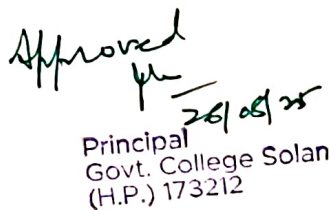 Approved
26/08/25
Principal
Govt. College Solan
(H.P.) 173212